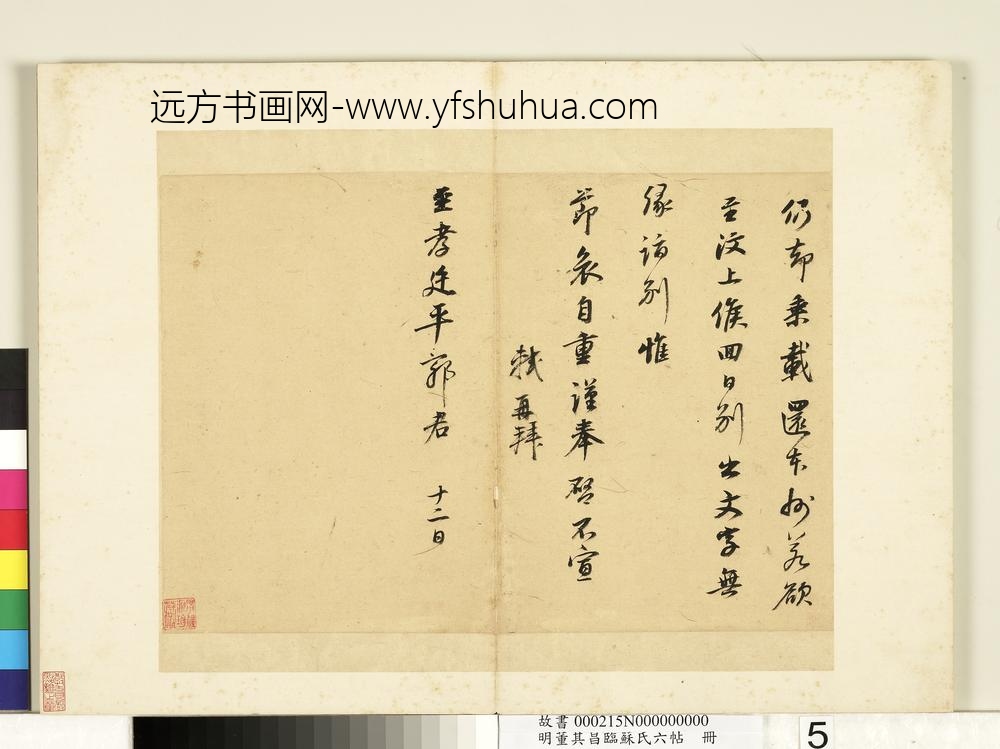 远方书画网-www.yfshuhua.com
仍却乘載還本州若欲
至汶上候回日別出文字無
緣訪別惟
節哀自重謹奉啓不宣
軾再拜
至孝廷平郭君 十二日
故書 000215N000000000
明董其昌臨蘇氏六帖 冊
5